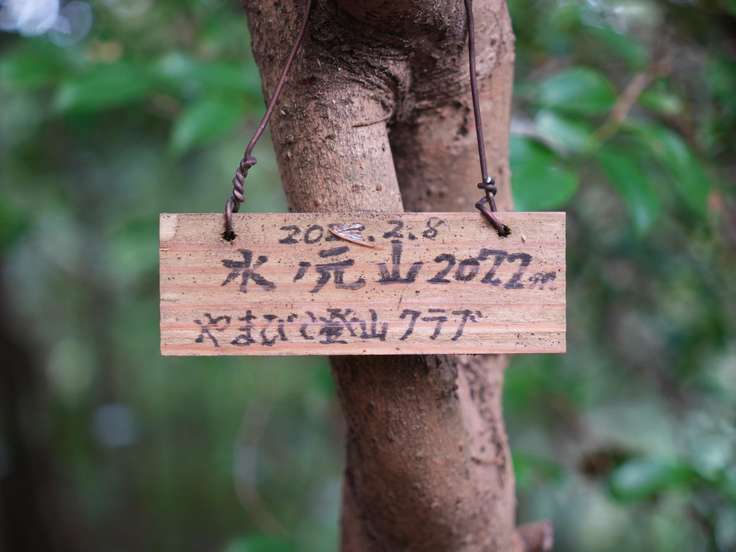 202 .2.8
水ノ元山 2022m
やまびこ登山クラブ